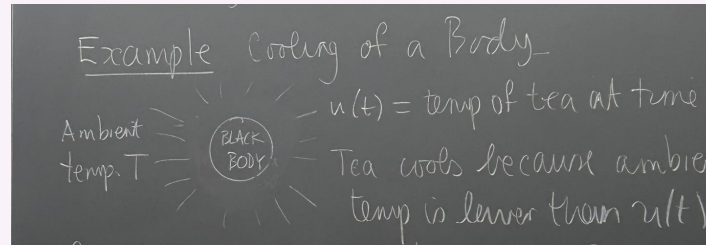 Example Cooling of a Body
Ambient
temp. T
BLACK
BODY
u(t) = temp of tea at time
Tea cools because ambie
temp is lower than u(t)